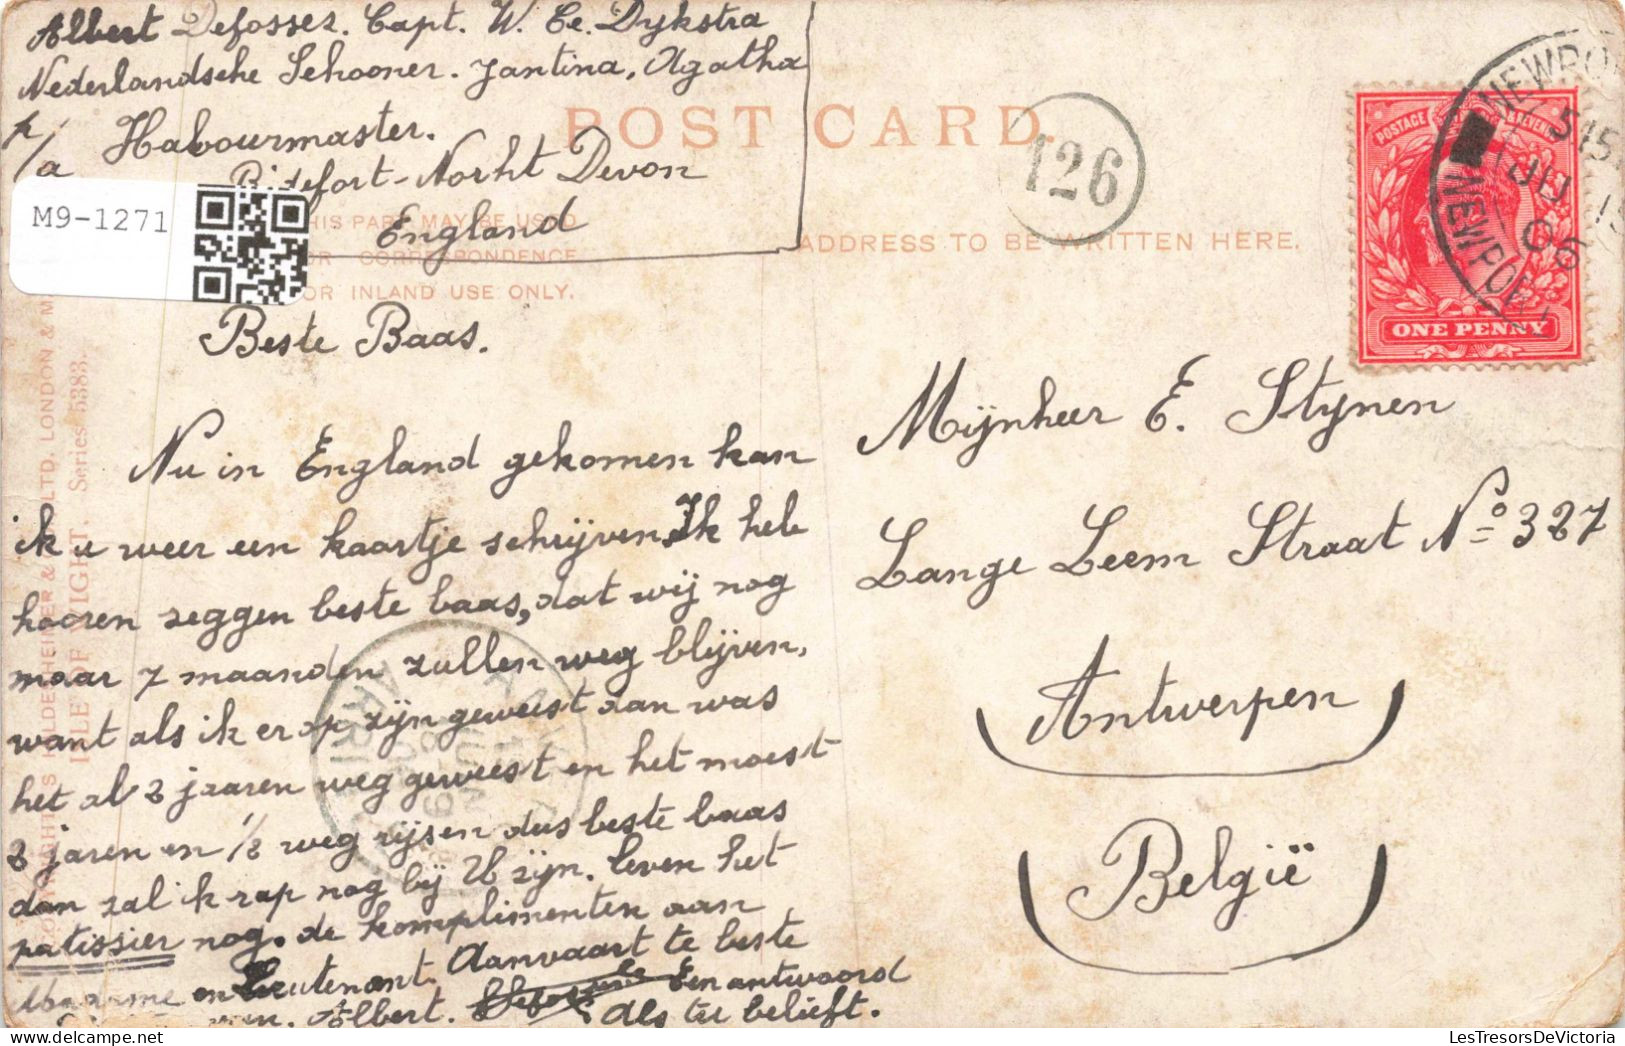 Albert Defossez. Capt. W. Ce. Dykstra
Nederlandsche Schooner. Jantina, Agatha
p/a Habourmaster.
Bidefort-Norht Devon
England
M9-1271
POST CARD.
126
HIS PART MAY BE USED
OR CORRESPONDENCE
OR INLAND USE ONLY.
ADDRESS TO BE WRITTEN HERE.
NEWPORT
515
JU 15
05
NEWPORT
POSTAGE & REVENUE
ONE PENNY
Beste Baas.
Nu in England gekomen kan
ik u weer een kaartje schrijven. Ik heb
hooren zeggen beste baas, dat wij nog
maar 7 maanden zullen weg blijven,
want als ik er op zijn geweest dan was
het al 2 jaaren weg geweest en het moest
2 jaren en 1/2 weg rijsen dus beste baas
dan zal ik rap nog bij U zijn. leven het
patissier nog. de komplimenten aan
Madame en Leutenant. Aanvaart te beste
Albert. Een antwoord
als ter belieft.
Mijnheer E. Stynen
Lange Leem Straat No 327
Antwerpen
België
S HILDESHEIMER & LTD. LONDON & M
ISLE OF WIGHT. Series 5383.
LesTresorsDeVictoria.com